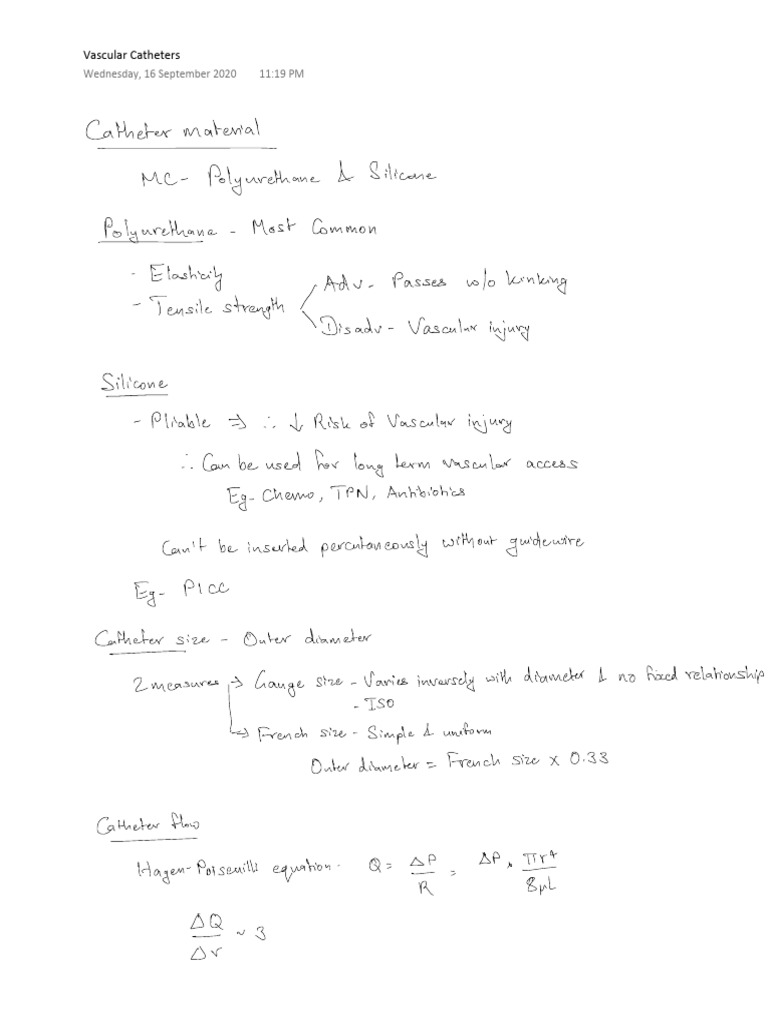 Vascular Catheters
Wednesday, 16 September 2020 11:19 PM
Catheter material
MC - Polyurethane & Silicone
Polyurethane - Most Common
- Elasticity
- Tensile strength
Adv - Passes w/o kinking
Disadv - Vascular injury
Silicone
- Pliable ⇒ ∴ ↓ Risk of Vascular injury
∴ Can be used for long term vascular access
Eg - Chemo, TPN, Antibiotics
Can't be inserted percutaneously without guidewire
Eg - PICC
Catheter size - Outer diameter
2 measures → Gauge size - Varies inversely with diameter & no fixed relationship
- ISO
→ French size - Simple & uniform
Outer diameter = French size x 0.33
Catheter flow
Hagen-Poiseuille equation - Q = ΔP/R = ΔP × πr⁴/8μL
ΔQ/Δr ~ 3